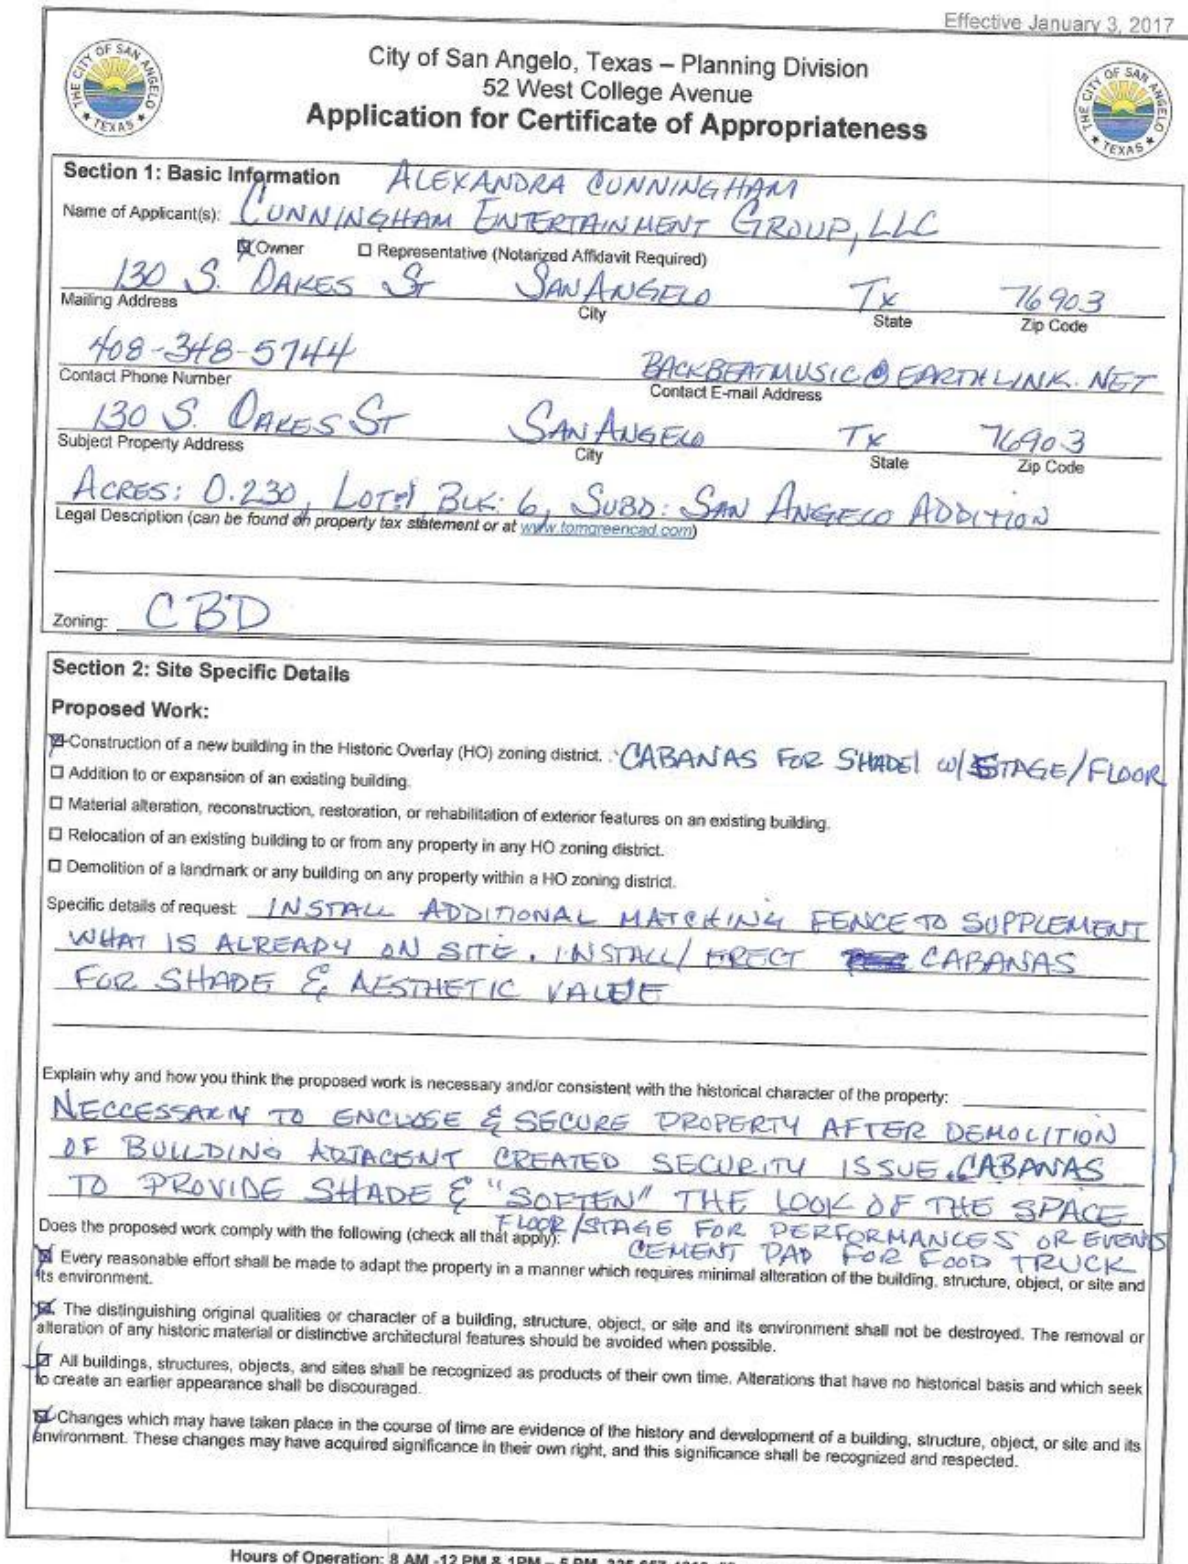 Effective January 3, 2017
City of San Angelo, Texas – Planning Division
52 West College Avenue
Application for Certificate of Appropriateness
THE CITY OF SAN ANGELO
TEXAS
THE CITY OF SAN ANGELO
TEXAS
Section 1: Basic Information ALEXANDRA CUNNINGHAM
Name of Applicant(s): CUNNINGHAM ENTERTAINMENT GROUP, LLC
☒ Owner ☐ Representative (Notarized Affidavit Required)
130 S. OAKES ST SAN ANGELO TX 76903
Mailing Address City State Zip Code
408-348-5744 BACKBEATMUSIC@EARTHLINK.NET
Contact Phone Number Contact E-mail Address
130 S. OAKES ST SAN ANGELO TX 76903
Subject Property Address City State Zip Code
ACRES: 0.230, LOT: BLK: 6, SUBD: SAN ANGELO ADDITION
Legal Description (can be found on property tax statement or at www.tomgreencad.com)
Zoning: CBD
Section 2: Site Specific Details
Proposed Work:
☒ Construction of a new building in the Historic Overlay (HO) zoning district. CABANAS FOR SHADE W/ STAGE/FLOOR
☐ Addition to or expansion of an existing building.
☐ Material alteration, reconstruction, restoration, or rehabilitation of exterior features on an existing building.
☐ Relocation of an existing building to or from any property in any HO zoning district.
☐ Demolition of a landmark or any building on any property within a HO zoning district.
Specific details of request: INSTALL ADDITIONAL MATCHING FENCE TO SUPPLEMENT
WHAT IS ALREADY ON SITE. INSTALL/ ERECT CABANAS
FOR SHADE & AESTHETIC VALUE
Explain why and how you think the proposed work is necessary and/or consistent with the historical character of the property:
NECCESSARY TO ENCLOSE & SECURE PROPERTY AFTER DEMOLITION
OF BUILDING ADJACENT CREATED SECURITY ISSUE. CABANAS
TO PROVIDE SHADE & "SOFTEN" THE LOOK OF THE SPACE
FLOOR/STAGE FOR PERFORMANCES OR EVENTS
Does the proposed work comply with the following (check all that apply):
CEMENT PAD FOR FOOD TRUCK
☒ Every reasonable effort shall be made to adapt the property in a manner which requires minimal alteration of the building, structure, object, or site and
its environment.
☒ The distinguishing original qualities or character of a building, structure, object, or site and its environment shall not be destroyed. The removal or
alteration of any historic material or distinctive architectural features should be avoided when possible.
☒ All buildings, structures, objects, and sites shall be recognized as products of their own time. Alterations that have no historical basis and which seek
to create an earlier appearance shall be discouraged.
☒ Changes which may have taken place in the course of time are evidence of the history and development of a building, structure, object, or site and its
environment. These changes may have acquired significance in their own right, and this significance shall be recognized and respected.
Hours of Operation: 8 AM -12 PM & 1PM – 5 PM